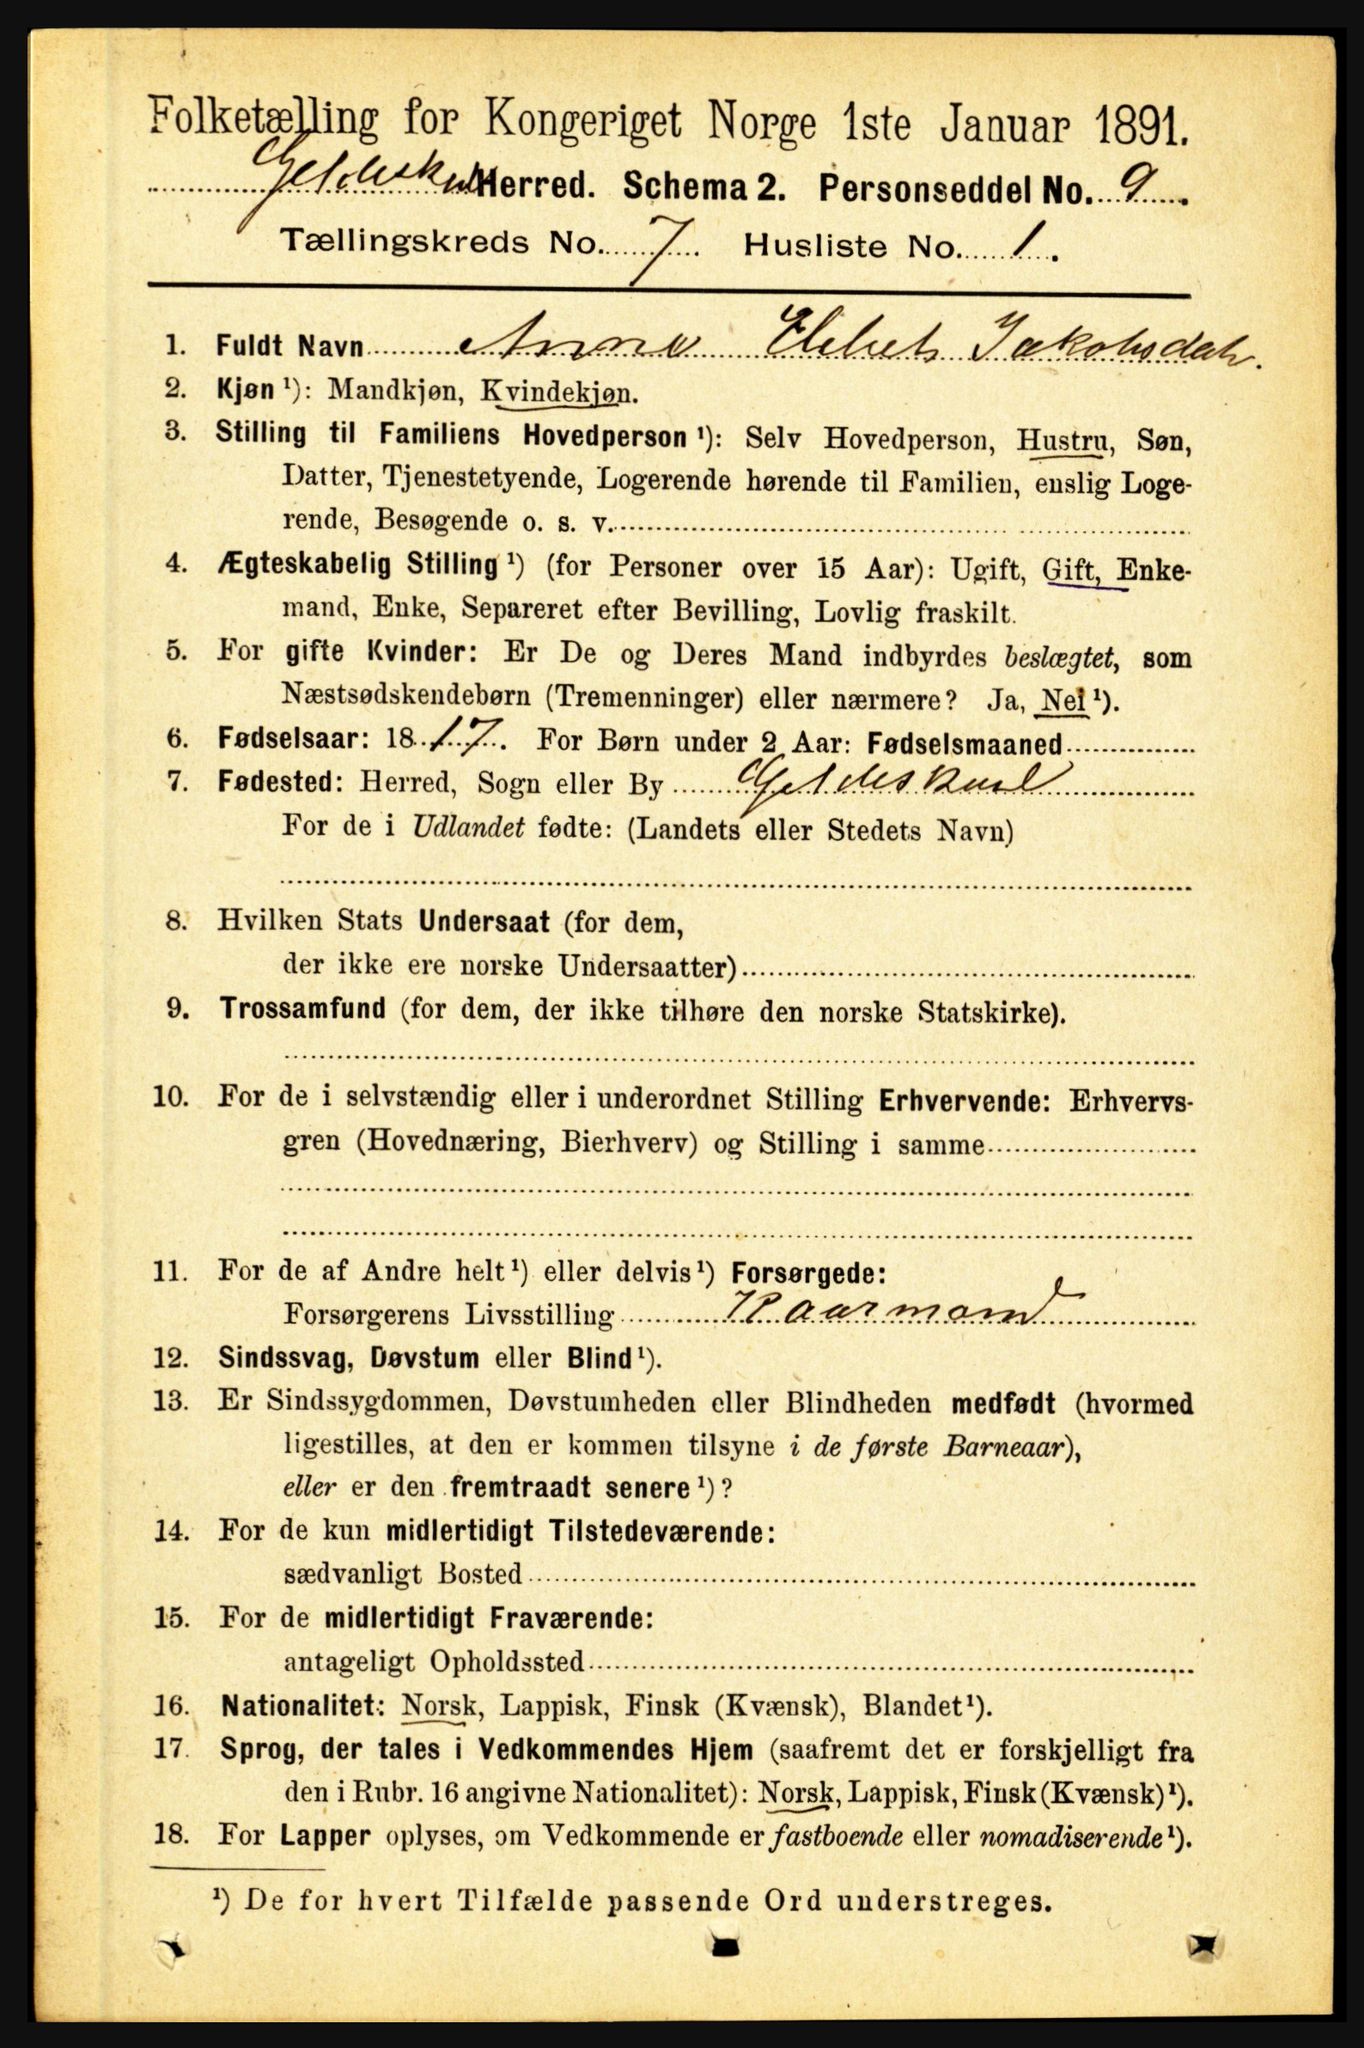 Folketælling for Kongeriget Norge 1ste Januar 1891.
Gildeskaal Herred. Schema 2. Personseddel No. 9.
Tællingskreds No. 7 Husliste No. 1.
1. Fuldt Navn Anna Elsbet Jakobsdatr.
2. Kjøn ¹): Mandkjøn, Kvindekjøn.
3. Stilling til Familiens Hovedperson ¹): Selv Hovedperson, Hustru, Søn,
Datter, Tjenestetyende, Logerende hørende til Familien, enslig Loge-
rende, Besøgende o. s. v.
4. Ægteskabelig Stilling ¹) (for Personer over 15 Aar): Ugift, Gift, Enke-
mand, Enke, Separeret efter Bevilling, Lovlig fraskilt.
5. For gifte Kvinder: Er De og Deres Mand indbyrdes beslægtet, som
Næstsødskendebørn (Tremenninger) eller nærmere? Ja, Nei ¹).
6. Fødselsaar: 1817. For Børn under 2 Aar: Fødselsmaaned
7. Fødested: Herred, Sogn eller By Gildeskaal
For de i Udlandet fødte: (Landets eller Stedets Navn)
8. Hvilken Stats Undersaat (for dem,
der ikke ere norske Undersaatter)
9. Trossamfund (for dem, der ikke tilhøre den norske Statskirke).
10. For de i selvstændig eller i underordnet Stilling Erhvervende: Erhvervs-
gren (Hovednæring, Bierhverv) og Stilling i samme
11. For de af Andre helt ¹) eller delvis ¹) Forsørgede:
Forsørgerens Livsstilling Kaarmand
12. Sindssvag, Døvstum eller Blind ¹).
13. Er Sindssygdommen, Døvstumheden eller Blindheden medfødt (hvormed
ligestilles, at den er kommen tilsyne i de første Barneaar),
eller er den fremtraadt senere ¹)?
14. For de kun midlertidigt Tilstedeværende:
sædvanligt Bosted
15. For de midlertidigt Fraværende:
antageligt Opholdssted
16. Nationalitet: Norsk, Lappisk, Finsk (Kvænsk), Blandet ¹).
17. Sprog, der tales i Vedkommendes Hjem (saafremt det er forskjelligt fra
den i Rubr. 16 angivne Nationalitet): Norsk, Lappisk, Finsk (Kvænsk) ¹).
18. For Lapper oplyses, om Vedkommende er fastboende eller nomadiserende ¹).
¹) De for hvert Tilfælde passende Ord understreges.